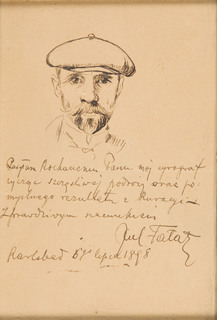 Zasyłam Kochanemu Panu mój wizerunek
życząc szczęśliwej podróży oraz po-
myślnego rezultatu z kuracyi
Z prawdziwym szacunkiem
Jul Fałat
Karlsbad 5go lipca 1898